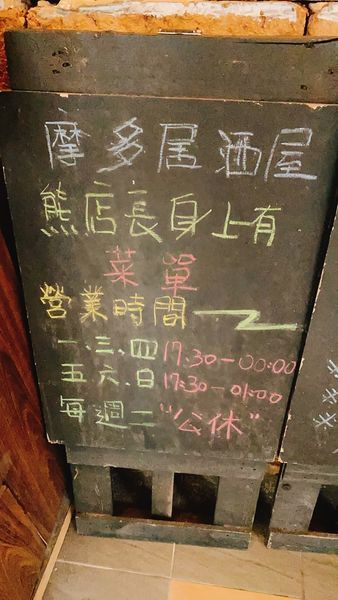 摩多居酒屋
熊店長身上有
菜單
營業時間
一.三.四 17:30-00:00
五.六.日 17:30-01:00
每週二"公休"